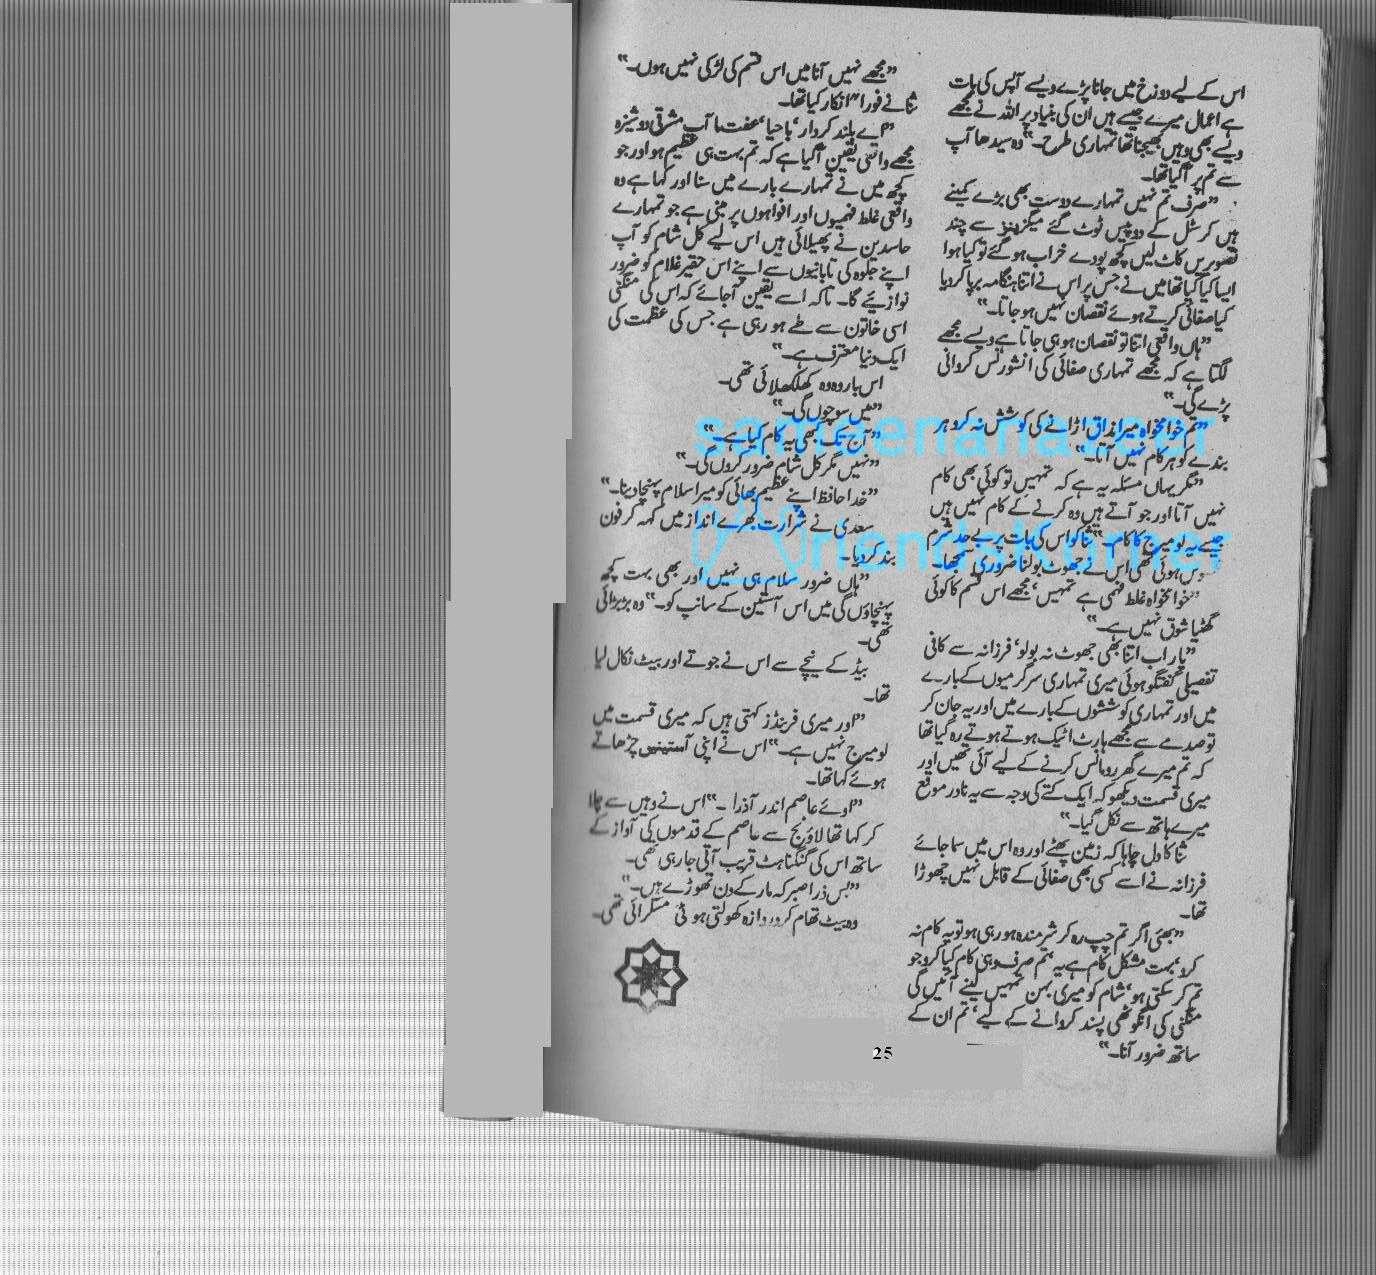 اس کے لیے دوزخ میں جانا پڑے ویسے آپس کی بات
ہے اعمال میرے جیسے ہیں ان کی بنیاد پر اللہ نے مجھے
ویسے بھی وہیں بھیجنا تھا تمہاری طرح۔“ وہ سیدھا آپ
سے تم پر آگیا تھا۔
”صرف تم نہیں تمہارے دوست بھی بڑے کمینے
ہیں کرسٹل کے دو پیس ٹوٹ گئے میگزینز سے چند
تصویریں کاٹ لیں کچھ پودے خراب ہو گئے تو کیا ہوا
ایسا کیا کیا تھا میں نے جس پر اس نے اتنا ہنگامہ برپا کر دیا
کیا صفائی کرتے ہوئے نقصان نہیں ہو جاتا۔“
”ہاں واقعی اتنا تو نقصان ہو ہی جاتا ہے ویسے مجھے
لگتا ہے کہ مجھے تمہاری صفائی کی انشورنس کروانی
پڑے گی۔“
”تم خوامخواہ میرا مذاق اڑانے کی کوشش نہ کرو ہر
بندے کو ہر کام نہیں آتا۔“
”مگر یہاں مسئلہ یہ ہے کہ تمہیں تو کوئی بھی کام
نہیں آتا اور جو آتے ہیں وہ کرنے کے کام نہیں ہیں
جیسے یہ لو میرج کا کام۔“ ثنا کو اس کی بات پر بے حد شرم
ہوئی تھی اس نے جھوٹ بولنا ضروری سمجھا۔
”خوامخواہ غلط فہمی ہے تمہیں‘ مجھے اس قسم کا کوئی
گھٹیا شوق نہیں ہے۔“
”یار اب اتنا بھی جھوٹ نہ بولو‘ فرزانہ سے کافی
تفصیلی گفتگو ہوئی میری تمہاری سرگرمیوں کے بارے
میں اور تمہاری کوششوں کے بارے میں اور یہ جان کر
تو صدمے سے مجھے ہارٹ اٹیک ہوتے ہوتے رہ گیا تھا
کہ تم میرے گھر رومانس کرنے کے لیے آئی تھیں اور
میری قسمت دیکھو کہ ایک کتے کی وجہ سے یہ نادر موقع
میرے ہاتھ سے نکل گیا۔“
ثنا کا دل چاہا کہ زمین پھٹے اور وہ اس میں سما جائے
فرزانہ نے اسے کسی بھی صفائی کے قابل نہیں چھوڑا
تھا۔
”بھئی اگر تم چپ رہ کر شرمندہ ہو رہی ہو تو یہ کام نہ
کرو‘ بہت مشکل کام ہے یہ‘ تم صرف وہی کام کیا کرو جو
تم کر سکتی ہو‘ شام کو میری بہن تمہیں لینے آئیں گی
منگنی کی انگوٹھی پسند کروانے کے لیے‘ تم ان کے
ساتھ ضرور آنا۔“
”مجھے نہیں آنا میں اس قسم کی لڑکی نہیں ہوں۔“
ثنا نے فوراً انکار کیا تھا۔
”اے بلند کردار‘ باحیا‘ عفت مآب مشرقی دوشیزہ
مجھے واقعی یقین آگیا ہے کہ تم بہت ہی عظیم ہو اور جو
کچھ میں نے تمہارے بارے میں سنا اور کہا ہے وہ
واقعی غلط فہمیوں اور افواہوں پر مبنی ہے جو تمہارے
حاسدین نے پھیلائی ہیں اس لیے کل شام کو آپ
اپنے جلوہ کی تابانیوں سے اپنے اس حقیر غلام کو ضرور
نوازیئے گا۔ تاکہ اسے یقین آجائے کہ اس کی منگنی
اسی خاتون سے طے ہو رہی ہے جس کی عظمت کی
ایک دنیا معترف ہے۔“
اس بار وہ وہ کھلکھلائی تھی۔
”میں سوچوں گی۔“
”آج تک کبھی یہ کام کیا ہے۔“
”نہیں مگر کل شام ضرور کروں گی۔“
”خدا حافظ اپنے عظیم بھائی کو میرا سلام پہنچا دینا۔“
سعدی نے شرارت بھرے انداز میں کہہ کر فون
بند کر دیا۔
”ہاں ضرور سلام ہی نہیں اور بھی بہت کچھ
پہنچاؤں گی میں اس آستین کے سانپ کو۔“ وہ بڑبڑائی
تھی۔
بیڈ کے نیچے سے اس نے جوتے اور بیٹ نکال لیا
تھا۔
”اور میری فرینڈز کہتی ہیں کہ میری قسمت میں
لو میرج نہیں ہے۔“ اس نے اپنی آستینیں چڑھاتے
ہوئے کہا تھا۔
”اوئے عاصم اندر آ ذرا۔“ اس نے وہیں سے چلا
کر کہا تھا لاؤنج سے عاصم کے قدموں کی آواز کے
ساتھ اس کی گنگناہٹ قریب آتی جا رہی تھی۔
”بس ذرا صبر کہ مار کے دن تھوڑے ہیں۔“
وہ بیٹ تھام کر دروازہ کھولتی ہوئی مسکرائی تھی۔
25